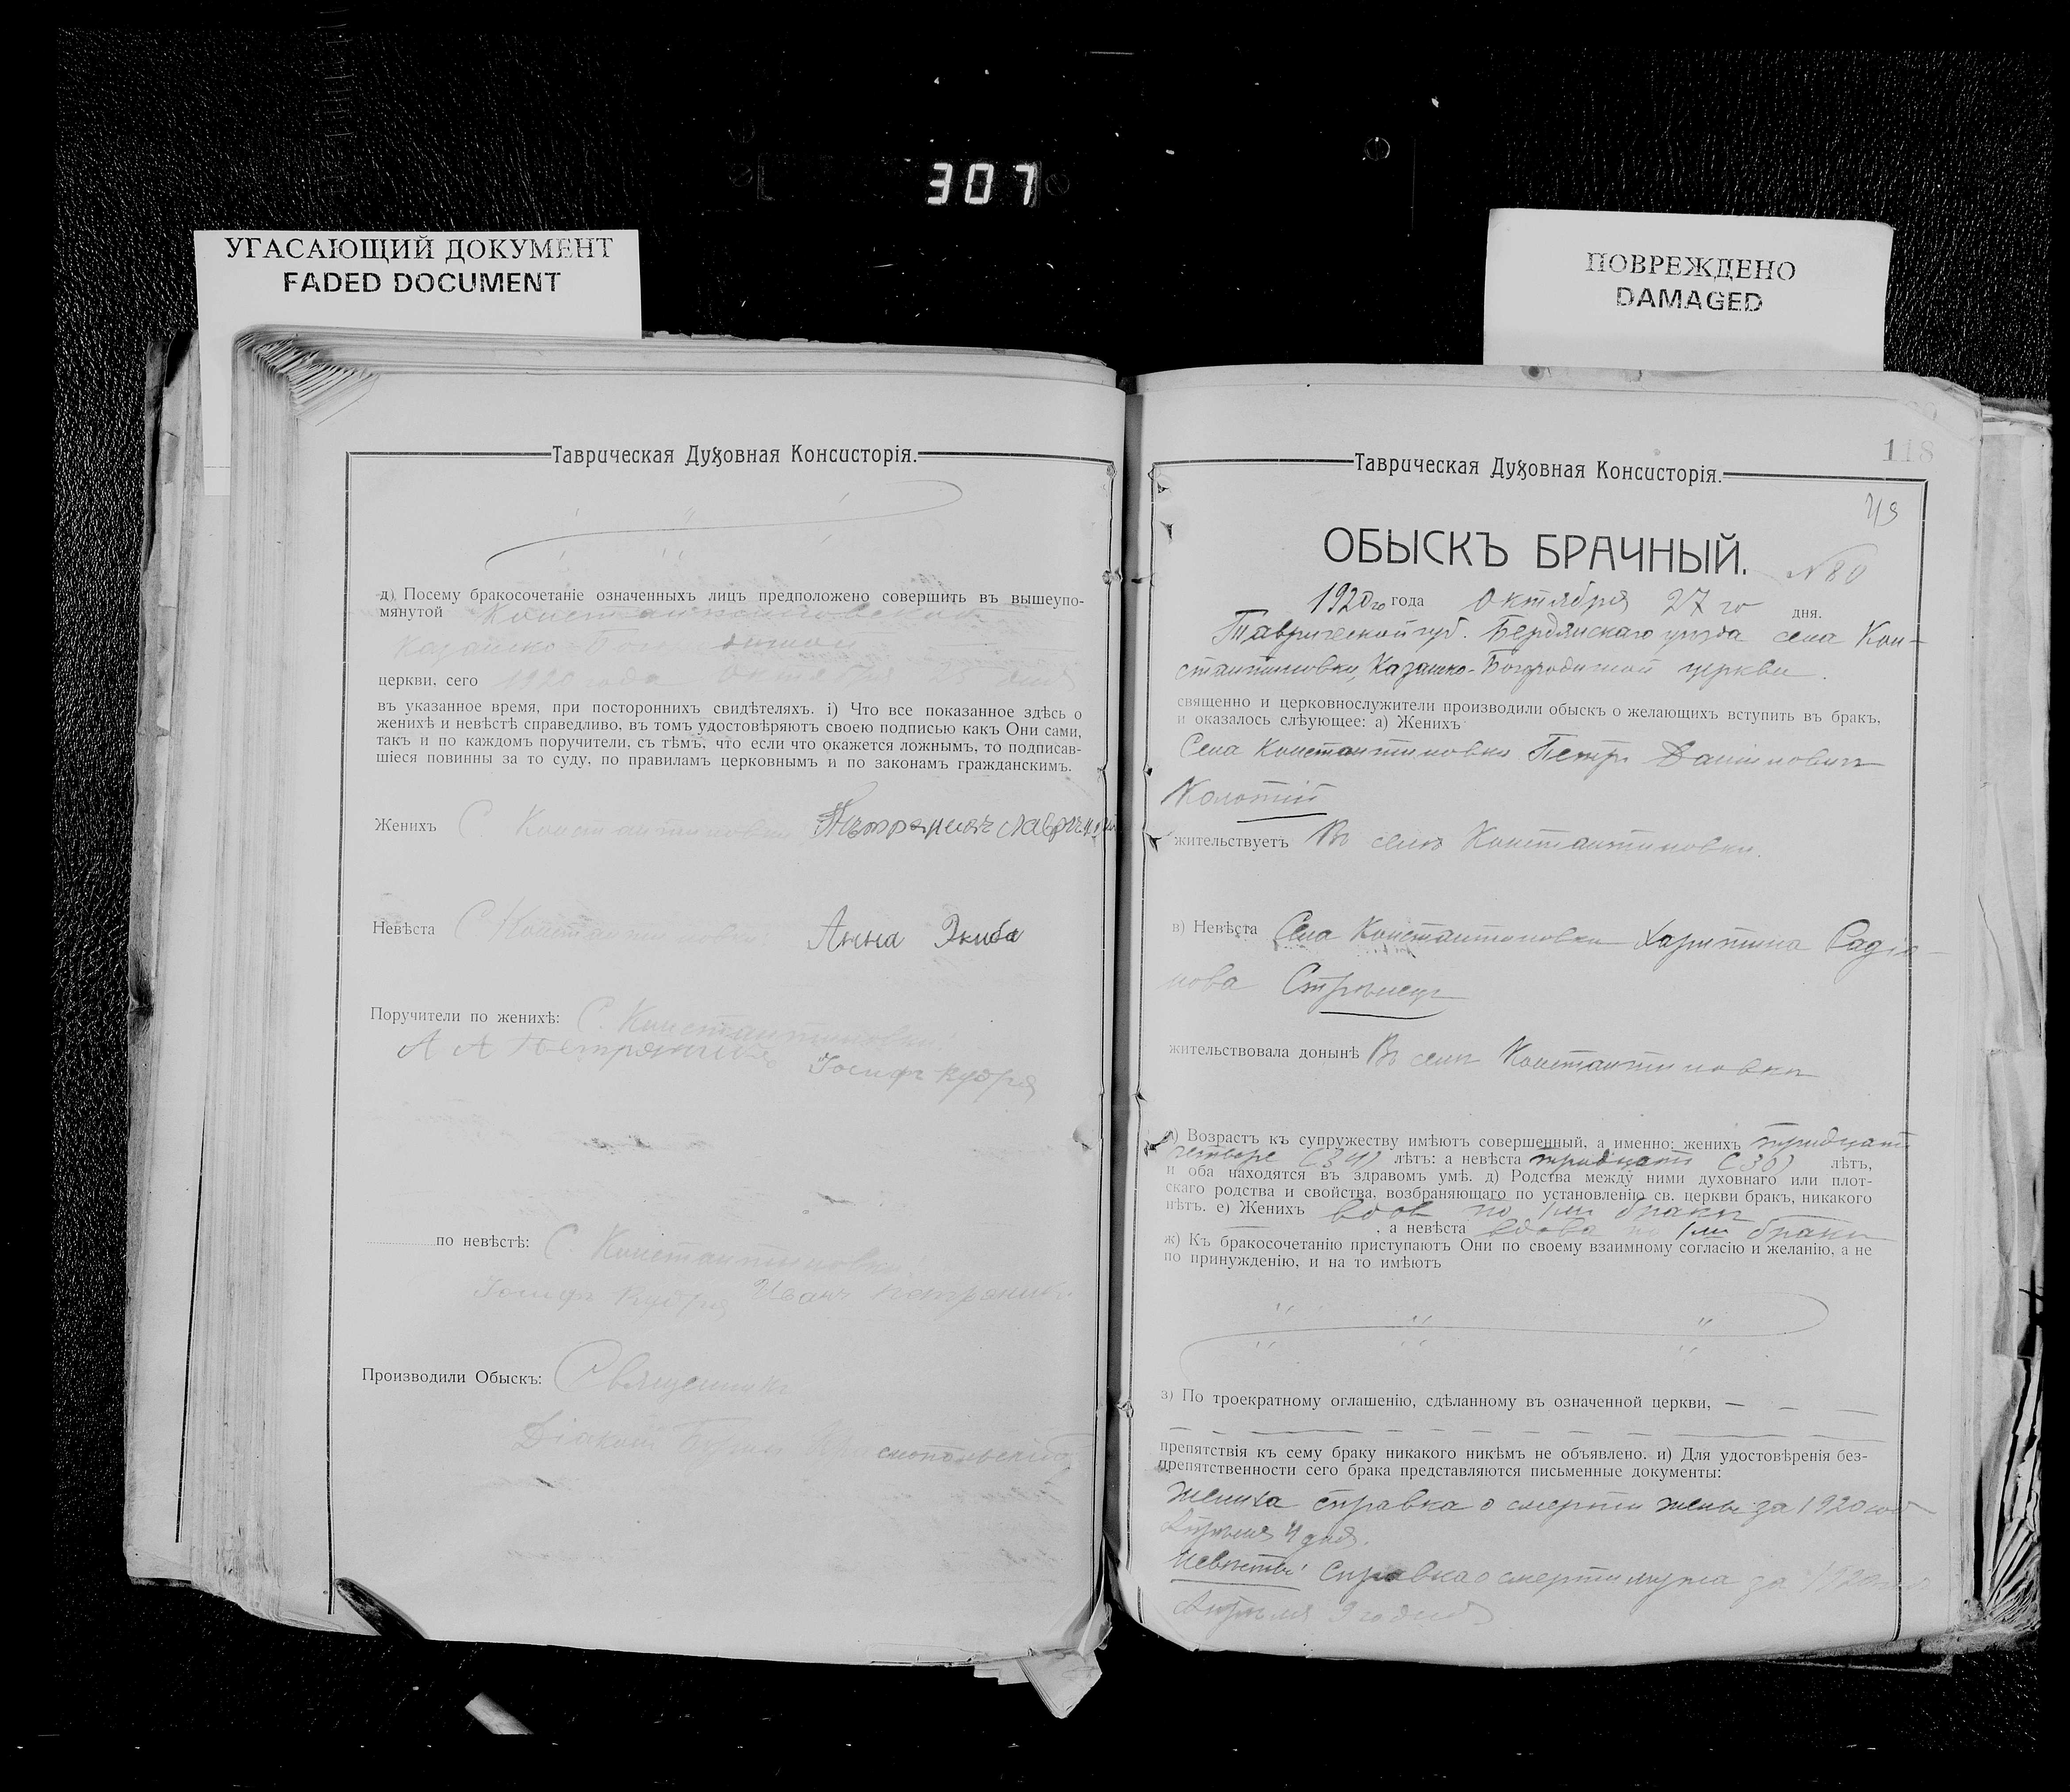 307
УГАСАЮЩИЙ ДОКУМЕНТ
FADED DOCUMENT
ПОВРЕЖДЕНО
DAMAGED
Таврическая Духовная Консисторія.
д) Посему бракосочетаніе означенныхъ лицъ предположено совершить въ вышеупо-
мянутой Константиновской
Казанско-
церкви, сего 1920 года Октября дня
въ указанное время, при постороннихъ свидѣтеляхъ. і) Что все показанное здѣсь о
женихѣ и невѣстѣ справедливо, въ томъ удостовѣряютъ своею подписью какъ Они сами,
такъ и по каждомъ поручители, съ тѣмъ, что если что окажется ложнымъ, то подписав-
шіеся повинны за то суду, по правиламъ церковнымъ и по законамъ гражданскимъ.
Женихъ С. Константиновки
Невѣста С. Константиновки Анна
Поручители по женихѣ: С. Константиновки
А А Іосифъ Кудря
по невѣстѣ: С. Константиновки
Іосифъ Кудря Иванъ
Производили Обыскъ: Священникъ
Діаконъ
118
Таврическая Духовная Консисторія.
ОБЫСКЪ БРАЧНЫЙ.
№ 80
1920го года Октября 27 го дня.
Таврической губ. Бердянскаго уѣзда села Кон-
стантиновки, Казанско-Богородичной церкви.
священно и церковнослужители производили обыскъ о желающихъ вступить въ бракъ,
и оказалось слѣующее: а) Женихъ
Села Константиновки Петръ
Колотій
жительствуетъ Въ селѣ Константиновки.
в) Невѣста Села Константиновки Харитина Радіо-
нова Стрѣлецъ
жительствовала донынѣ Въ селѣ Константиновки
г) Возрастъ къ супружеству имѣютъ совершенный, а именно: женихъ тридцать
четыре (34) лѣтъ: а невѣста тридцать (30) лѣтъ,
и оба находятся въ здравомъ умѣ. д) Родства между ними духовнаго или плот-
скаго родства и свойства, возбраняющаго по установленію св. церкви бракъ, никакого
нѣтъ. е) Женихъ вдов по 1мъ бракѣ
, а невѣста вдова по 1мъ бракѣ
ж) Къ бракосочетанію приступаютъ Они по своему взаимному согласію и желанію, а не
по принужденію, и на то имѣютъ
з) По троекратному оглашенію, сдѣланному въ означенной церкви,
препятствія къ сему браку никакого никѣмъ не объявлено. и) Для удостовѣренія без-
препятственности сего брака представляются письменные документы:
Жениха справка о смерти жены за 1920 год
Апрѣля 4 дня.
Невѣсты: Справка о смерти мужа за 1920
Апрѣля 9 го дня